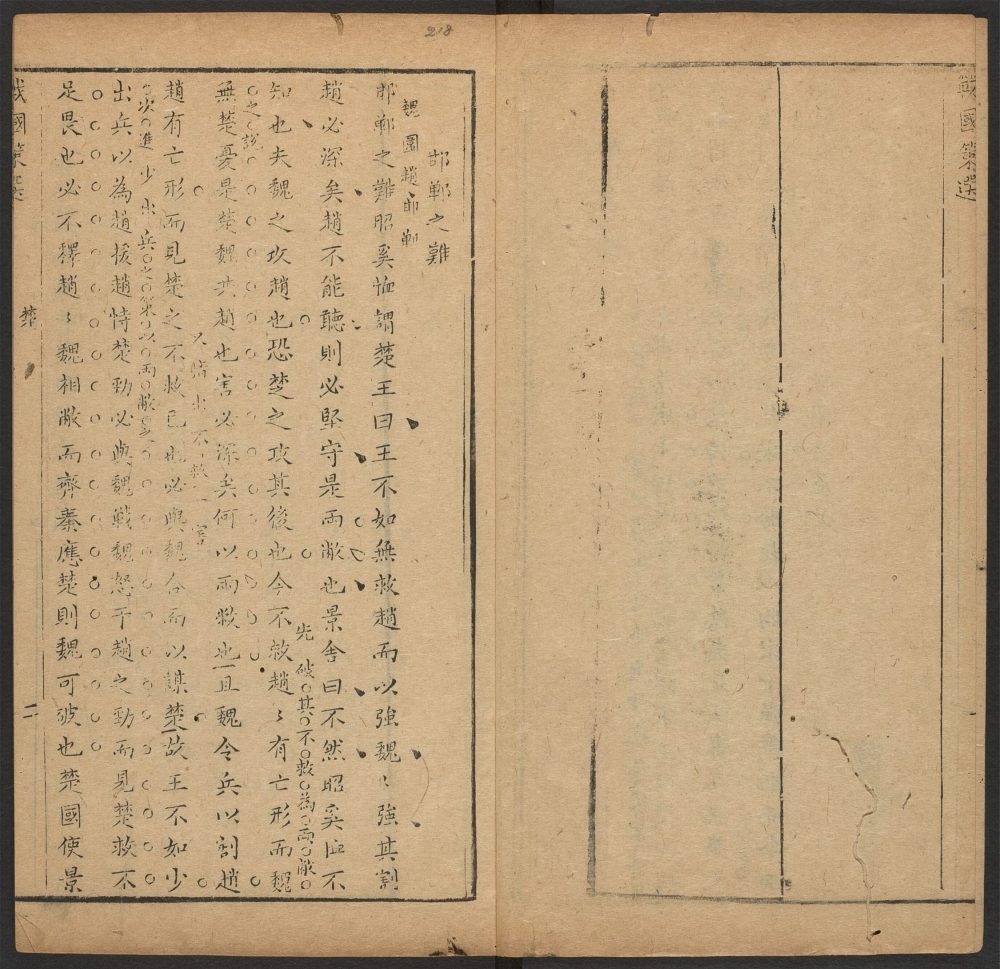 戰國策選
邯鄲之難
魏圍趙邯鄲
邯鄲之難昭奚恤謂楚王曰王不如無救趙而以強魏〻強其割
趙必深矣趙不能聽則必堅守是兩敝也景舍曰不然昭奚恤不
先破其不救為兩敝
之說
知也夫魏之攻趙也恐楚之攻其後也今不救趙〻有亡形而魏
無楚憂是楚魏共趙也害必深矣何以兩敝也且魏令兵以割趙
又 出不救 害
趙有亡形而見楚之不救已也必與魏合而以謀楚故王不如少
次進少出兵之策以兩敝之
出兵以為趙援趙恃楚勁必與魏戰魏怒于趙之勁而見楚救不
足畏也必不釋趙〻魏相敝而齊秦應楚則魏可破也楚國使景
戰國策選
楚
二
218